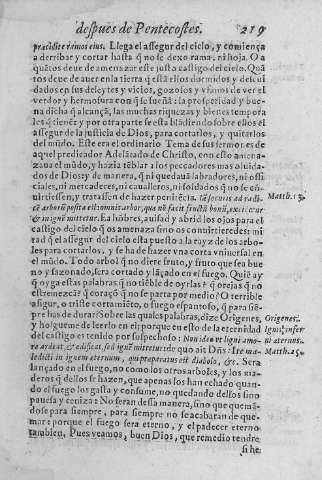 despues de Pentecostes. 219
præcidite ramos eius. Llega el assegur del cielo, y comiença
a derribar y cortar hasta q̃ no se dexo rama, ni hoja. O a
quãtos deue de amenazar este justo castigo del cielo. Quã
tos deue de auer en la tierra q̃ està ellos dormidos y descui
dados en sus deleytes y vicios, gozosos y vfanos de ver el
verdor y hermosura con q̃ se sueñã: la prosperidad y bue
na dicha q̃ alcançã, las muchas riquezas y bienes tempora
les q̃ tienẽ: y por otra parte se esta blãdiendo sobre esto el
assegur de la justicia de Dios, para cortarlos, y quitarlos
del mũdo. Este era el ordinario Tema de sus sermones de
aquel predicador Adelãtado de Christo, con esto amena-
zaua el mũdo, y hazia tẽblar a los peccadores mas aluida-
dos de Dios: y de manera, q̃ ni quedauã labradores, ni offi
ciales, ni mercaderes, ni caualleros, ni soldados q̃ no se cõ
uirtiessen, y tratassen de hazer penitẽcia. Iã securis ad radi-
cẽ arborũ posita est: omnis arbor, quæ nõ facit fructũ bonũ, excidetur
& in ignẽ mittetur. Ea hõbres, auisad y abrid los ojos para el
castigo del cielo q̃ os amenaza sino os conuirtieredes: mi
rad q̃ el assegur del cielo esta puesto a la rayz de los arbo-
les para cortarlos, y se ha de hazer vna corta vniuersal en
el mũdo. Todo arbol q̃ no diere fruto, y fruto que sea bue
no y sazonado, sera cortado y lãçado en el fuego. Quiẽ ay
q̃ oyga estas palabras q̃ no tiẽble de oyrlas? q̃ orejas q̃ no
estremezcã? q̃ coraçõ q̃ no se parta por medio? O terrible
assegur, o triste cortamiẽto, o fuego espantoso, q̃ para siẽ
pre has de durar! Sobre las quales palabras, dize Origenes,
y holguẽme de leerlo en el: porque en esto de la eternidad
del castigo es tenido por sospechoso: Non ideo vt ligni amo-
re ardeat, & ædificet, sed ignẽ mittetur: de quo ait Dñs: Ite ma-
ledicti in ignem æternum, qui præparatus est diabolo, &c. Sera
lançado en el fuego, no como los otros arboles, y los ma-
deros q̃ dellos se hazen, que apenas los han echado quando
el fuego los gasta y consume, no quedando dellos sino
pauesa y ceniza: No seran dessa manera, sino que quemã-
dose para siempre, para siempre no se acabaran de que-
mar: porque el fuego sera eterno, y el padecer eterno
tambien. Pues veamos, buen Dios, que remedio tendre
si he
Matth. 3.
Origenes.
Ignis infer
ni æternus.
Matth. 25.